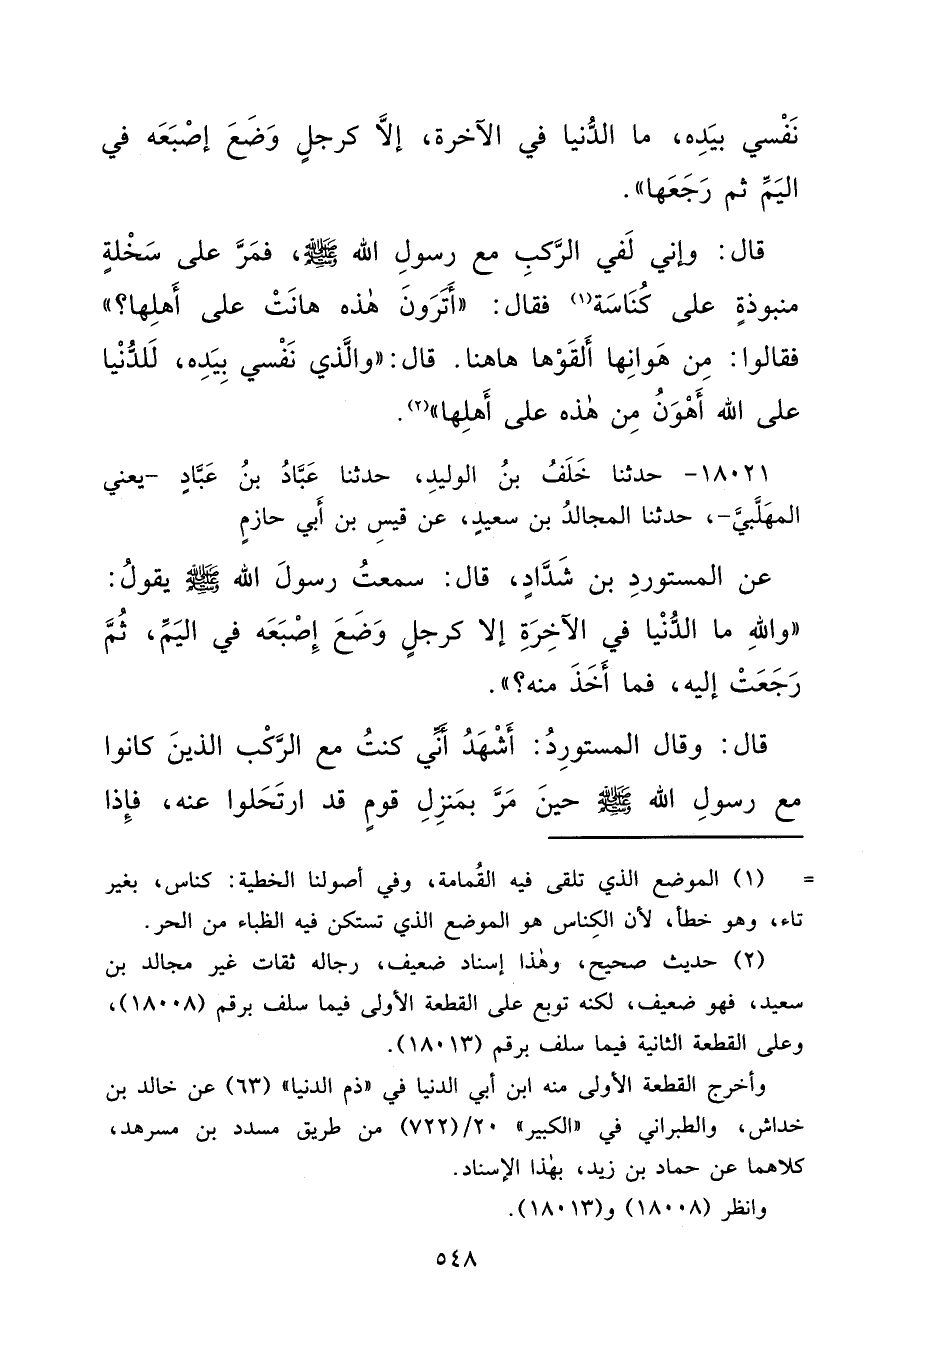 نَفْسي بيَدِه، ما الدُّنيا في الآخرة، إلَّا كرجلٍ وَضَعَ إصْبَعَه في
اليَمِّ ثم رَجَعَها».
قال: وإني لَفي الرَّكبِ مع رسولِ الله ﷺ، فمَرَّ على سَخْلةٍ
منبوذةٍ على كُنَاسَة(١) فقال: «أَتَرَونَ هٰذه هانَتْ على أَهلِها؟»
فقالوا: مِن هَوانِها أَلقَوْها هاهنا. قال: «والَّذي نَفْسي بِيَدِه، لَلدُّنْيا
على الله أَهْوَنُ مِن هٰذه على أَهلِها»(٢).
١٨٠٢١- حدثنا خَلَفُ بنُ الوليدِ، حدثنا عَبَّادُ بنُ عَبَّادٍ -يعني
المهَلَّبيَّ-، حدثنا المجالدُ بن سعيدٍ، عن قيسِ بن أَبي حازمٍ
عن المستوردِ بن شَدَّادٍ، قال: سمعتُ رسولَ الله ﷺ يقولُ:
«واللهِ ما الدُّنْيا في الآخِرَةِ إلا كرجلٍ وَضَعَ إِصْبَعَه في اليَمِّ، ثُمَّ
رَجَعَتْ إليه، فما أَخَذَ منه؟».
قال: وقال المستورِدُ: أَشْهَدُ أَنِّي كنتُ مع الرَّكْب الذينَ كانوا
مع رسولِ الله ﷺ حينَ مَرَّ بمَنزِلِ قومٍ قد ارتَحَلوا عنه، فإِذا
= (١) الموضع الذي تلقى فيه القُمامة، وفي أصولنا الخطية: كناس، بغير
تاء، وهو خطأ، لأن الكِناس هو الموضع الذي تستكن فيه الظباء من الحر.
(٢) حديث صحيح، وهٰذا إسناد ضعيف، رجاله ثقات غير مجالد بن
سعيد، فهو ضعيف، لكنه توبع على القطعة الأولى فيما سلف برقم (١٨٠٠٨)،
وعلى القطعة الثانية فيما سلف برقم (١٨٠١٣).
وأخرج القطعة الأولى منه ابن أبي الدنيا في «ذم الدنيا» (٦٣) عن خالد بن
خداش، والطبراني في «الكبير» ٢٠/(٧٢٢) من طريق مسدد بن مسرهد،
كلاهما عن حماد بن زيد، بهٰذا الإسناد.
وانظر (١٨٠٠٨) و(١٨٠١٣).
٥٤٨